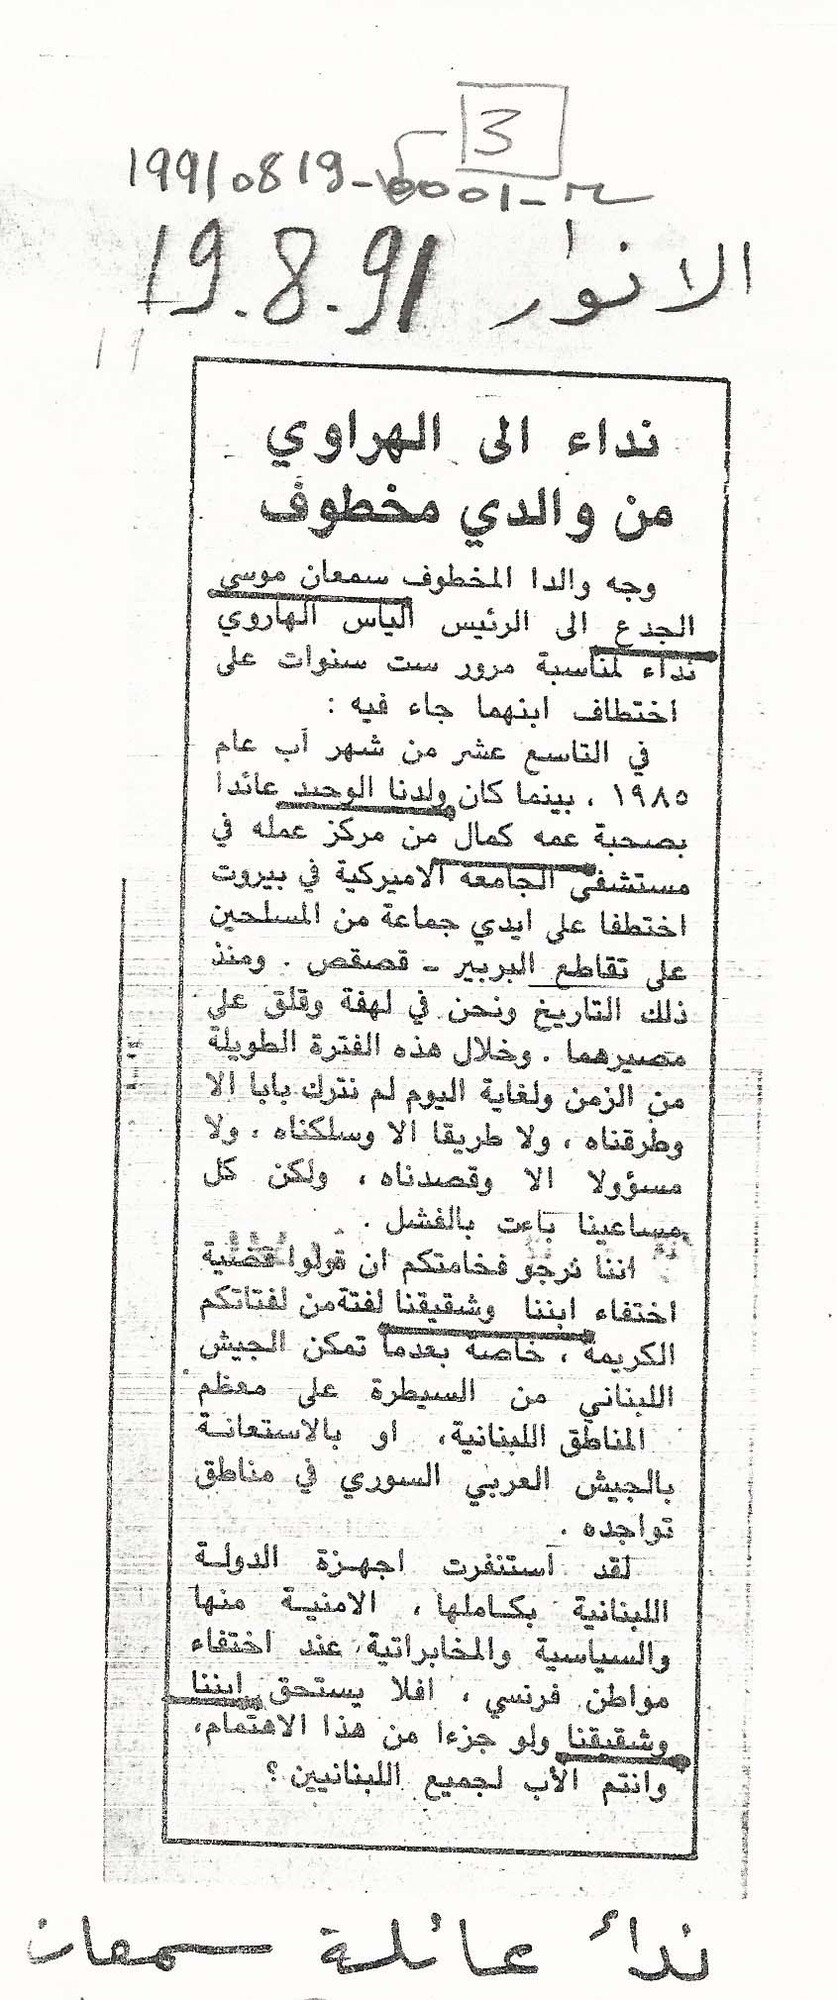 3
19910819-0001-
19.8.91 الانوار
نداء الى الهراوي
من والدي مخطوف
وجه والدا المخطوف سمعان موسى
الجدع الى الرئيس الياس الهاروي
نداء لمناسبة مرور ست سنوات على
اختطاف ابنهما جاء فيه :
في التاسع عشر من شهر آب عام
١٩٨٥ ، بينما كان ولدنا الوحيد عائدا
بصحبة عمه كمال من مركز عمله في
مستشفى الجامعة الاميركية في بيروت
اختطفا على ايدي جماعة من المسلحين
على تقاطع البربير - قصقص . ومنذ
ذلك التاريخ ونحن في لهفة وقلق على
مصيرهما . وخلال هذه الفترة الطويلة
من الزمن ولغاية اليوم لم نترك بابا الا
وطرقناه ، ولا طريقا الا وسلكناه ، ولا
مسؤولا الا وقصدناه ، ولكن كل
مساعينا باءت بالفشل .
اننا نرجو فخامتكم ان تولوا قضية
اختفاء ابننا وشقيقنا لفتة من لفتاتكم
الكريمة ، خاصة بعدما تمكن الجيش
اللبناني من السيطرة على معظم
المناطق اللبنانية، او بالاستعانة
بالجيش العربي السوري في مناطق
تواجده .
لقد استنفرت اجهزة الدولة
اللبنانية بكاملها ، الامنية منها
والسياسية والمخابراتية عند اختفاء
مواطن فرنسي ، افلا يستحق ابننا
وشقيقنا ولو جزءا من هذا الاهتمام،
وانتم الأب لجميع اللبنانيين ؟
نداء عائلة سمعان